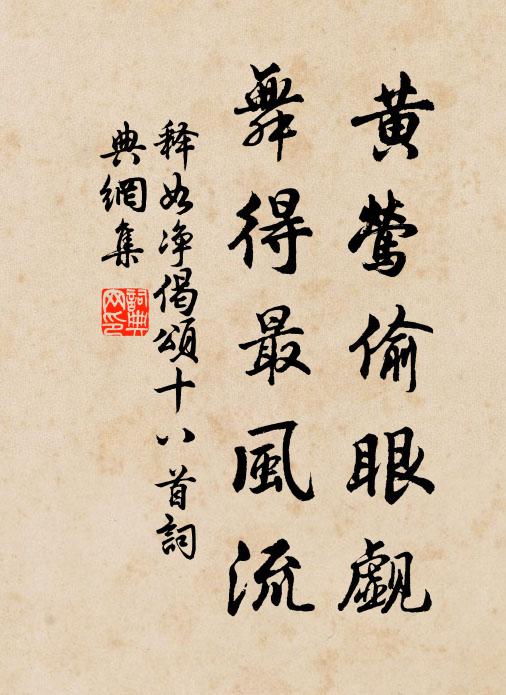 黄鶯偷眼覷
舞得最風流
釋如净偈頌十八首詞
典網集
詞典網印